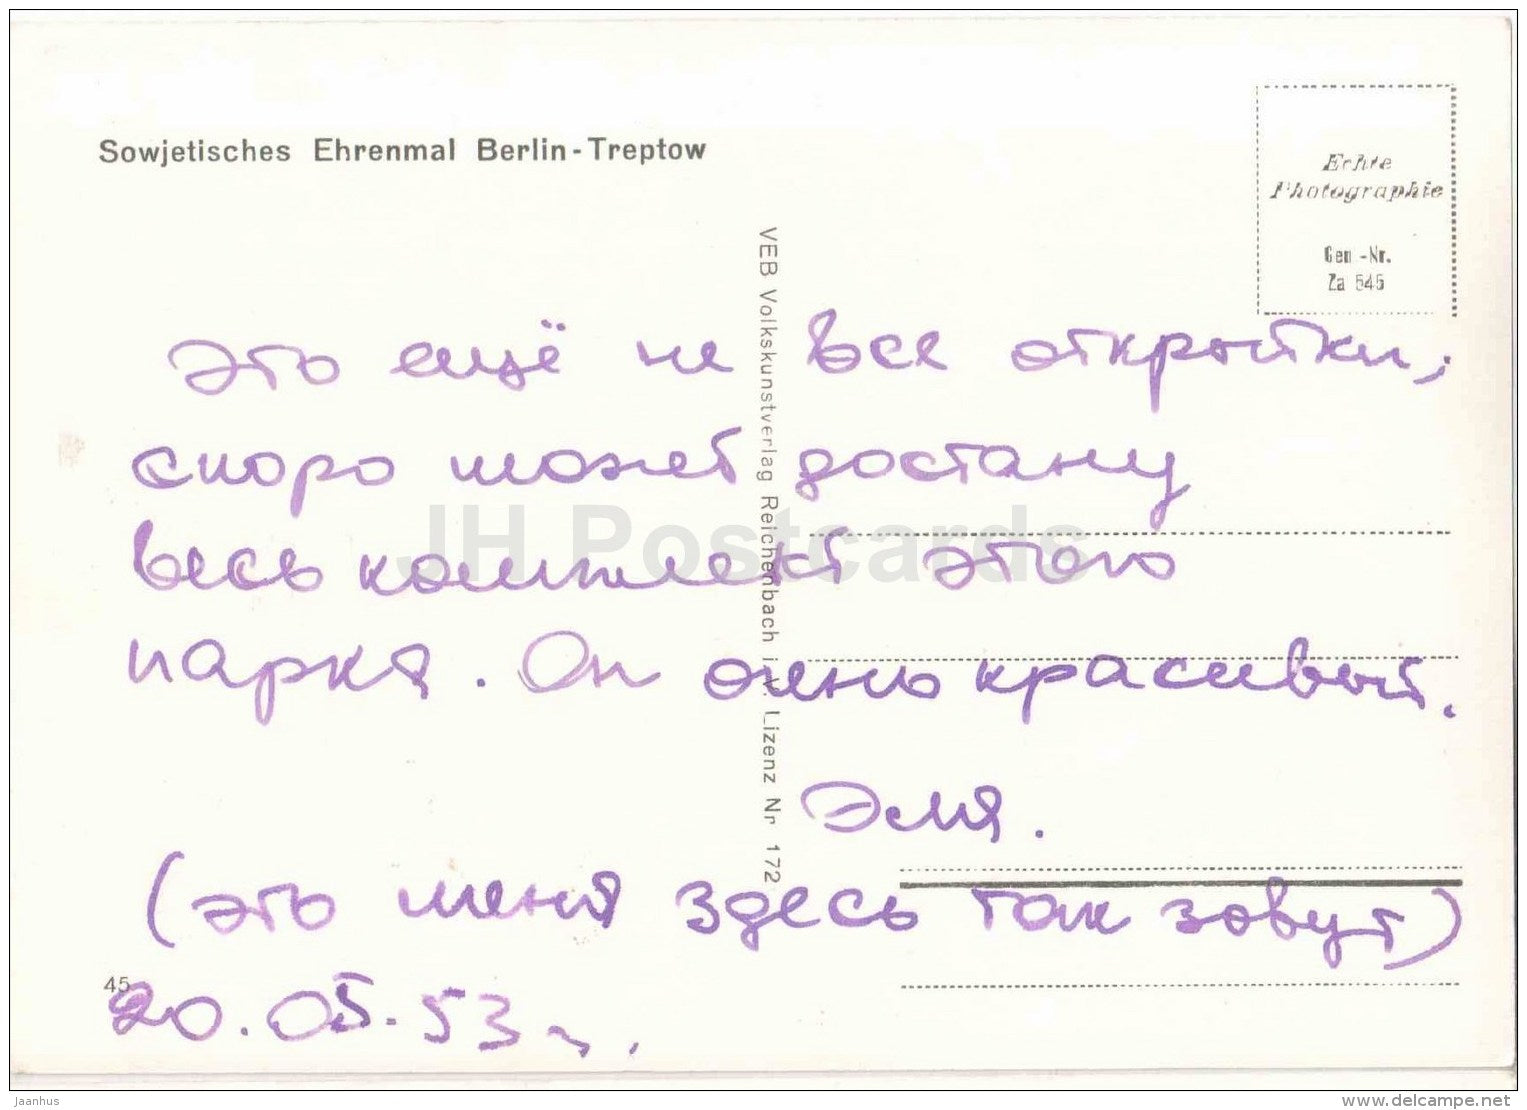 Sowjetisches Ehrenmal Berlin-Treptow
Echte
Photographie
Gen-Nr.
Za 545
VEB Volkskunstverlag Reichenbach i. V. Lizenz Nr 172
это ещё не все открытки,
скоро может достану
весь комплект этого
парка. Он очень красивый.
Эля.
(это меня здесь так зовут)
45
20.05.53 г.
JH Postcards
Jaanhus
www.delcampe.net